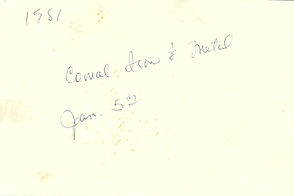 1981
Comal Iron & Metal
Jan. 5th